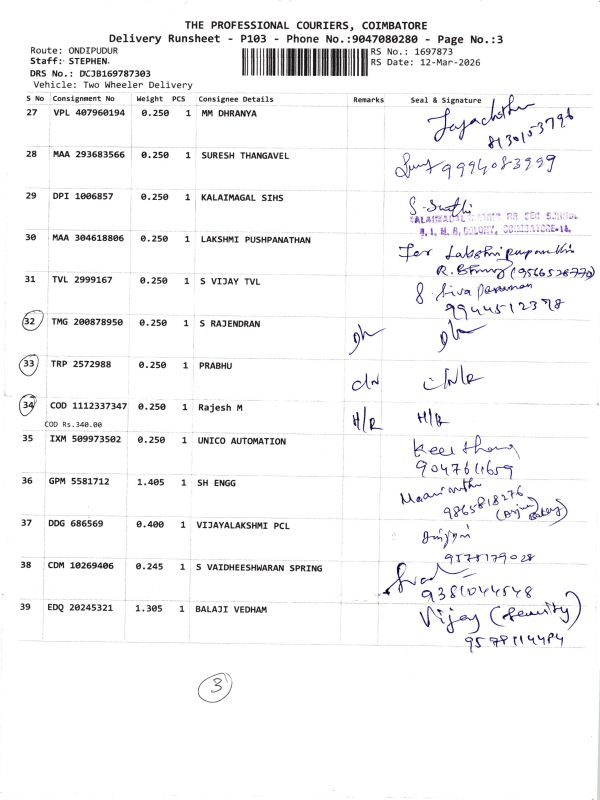 THE PROFESSIONAL COURIERS, COIMBATORE
Delivery Runsheet - P103 - Phone No.:9047080280 - Page No.:3
Route: ONDIPUDUR
RS No.: 1697873
Staff: STEPHEN
RS Date: 12-Mar-2026
DRS No.: DCJB169787303
Vehicle: Two Wheeler Delivery
S No Consignment No Weight PCS Consignee Details Remarks Seal & Signature
27 VPL 407960194 0.250 1 MM DHRANYA
8130153796
28 MAA 293683566 0.250 1 SURESH THANGAVEL
9994083999
29 DPI 1006857 0.250 1 KALAIMAGAL SIHS
COIMBATORE
30 MAA 304618806 0.250 1 LAKSHMI PUSHPANATHAN
For
31 TVL 2999167 0.250 1 S VIJAY TVL
9944512398
32 TMG 200878950 0.250 1 S RAJENDRAN
33 TRP 2572988 0.250 1 PRABHU
34 COD 1112337347 0.250 1 Rajesh M H/R H/R
COD Rs.340.00
35 IXM 509973502 0.250 1 UNICO AUTOMATION
36 GPM 5581712 1.405 1 SH ENGG
9865818276
37 DDG 686569 0.400 1 VIJAYALAKSHMI PCL
9578179028
38 CDM 10269406 0.245 1 S VAIDHEESHWARAN SPRING
9381044548
39 EDQ 20245321 1.305 1 BALAJI VEDHAM
Vijay (Security)
9578114484
3